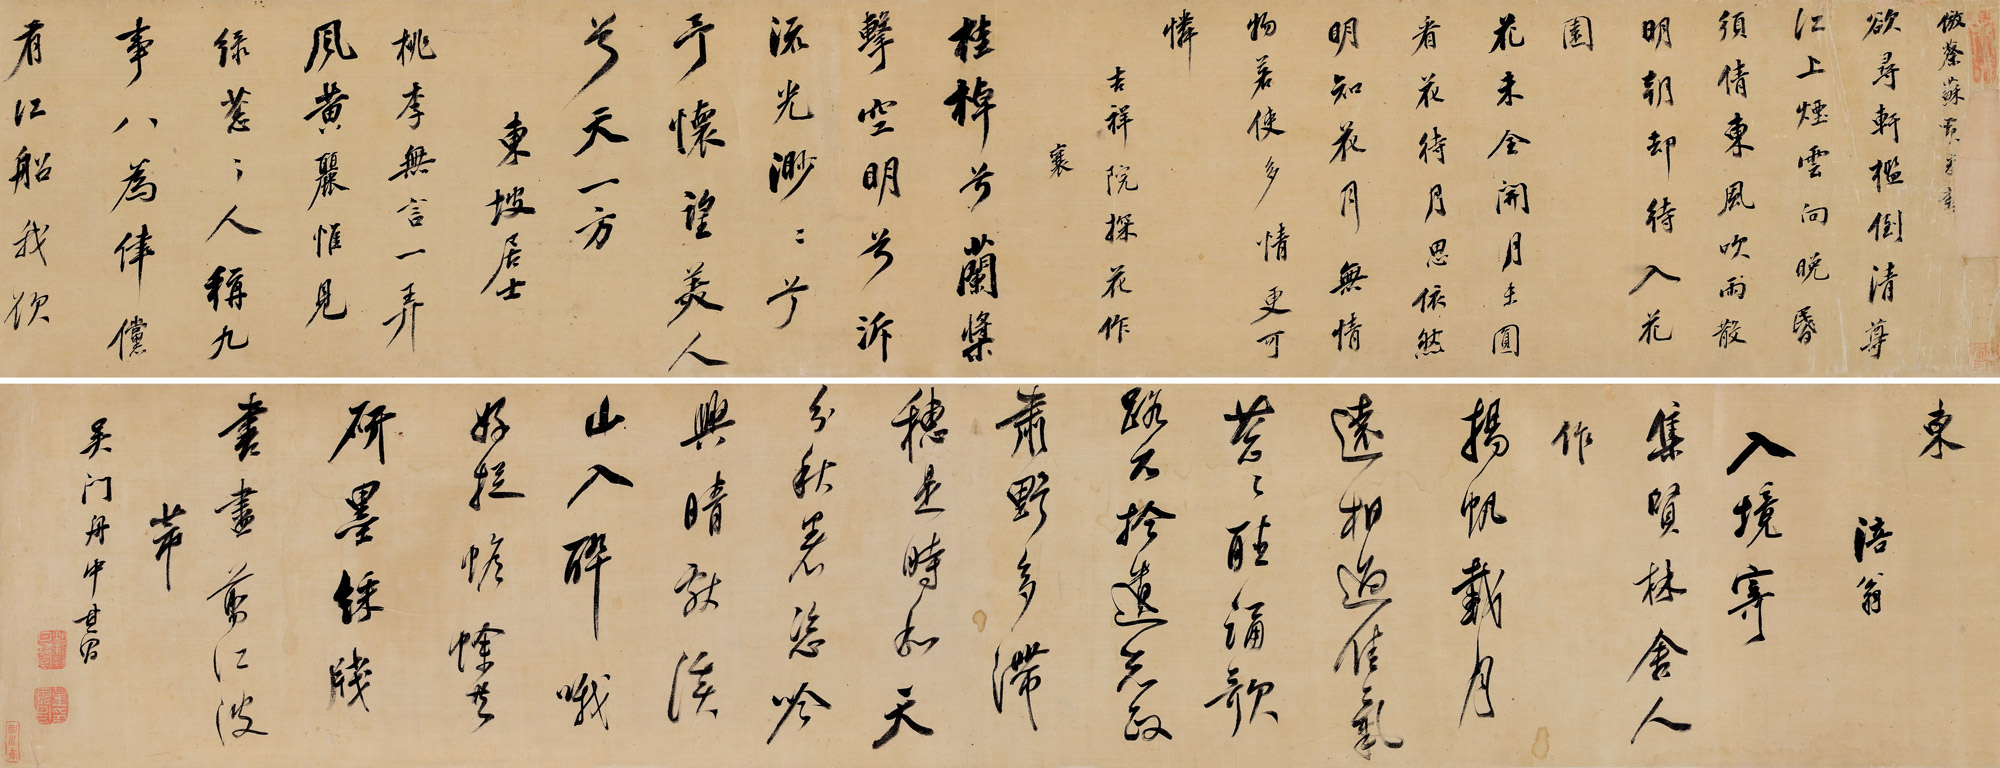 倣蔡蘇黃米書
欲尋軒檻倒清尊
江上煙雲向晚昏
須倩東風吹雨散
明朝却待入花
園
花未全開月未圓
看花待月思依然
明知花月無情
物若使多情更可
憐
吉祥院探花作
襄
桂棹兮蘭槳
擊空明兮泝
流光渺〻兮
予懷望美人
兮天一方
東坡居士
桃李無言一再
風黃麗惟見
綠蔥〻人稱九
事八為律儻
有江船我欲
東
涪翁
入境寄
集賢林舍人
作
揚帆載月
遠相過佳氣
蔥〻聽誦歌
路不拾遺知政
肅野多滯
穗是時和天
分秋暑資吟
興晴獻溪
山入醉哦
便捉蟾蜍共
研墨綵牋
書盡剪江波
芾
吳門舟中其昌